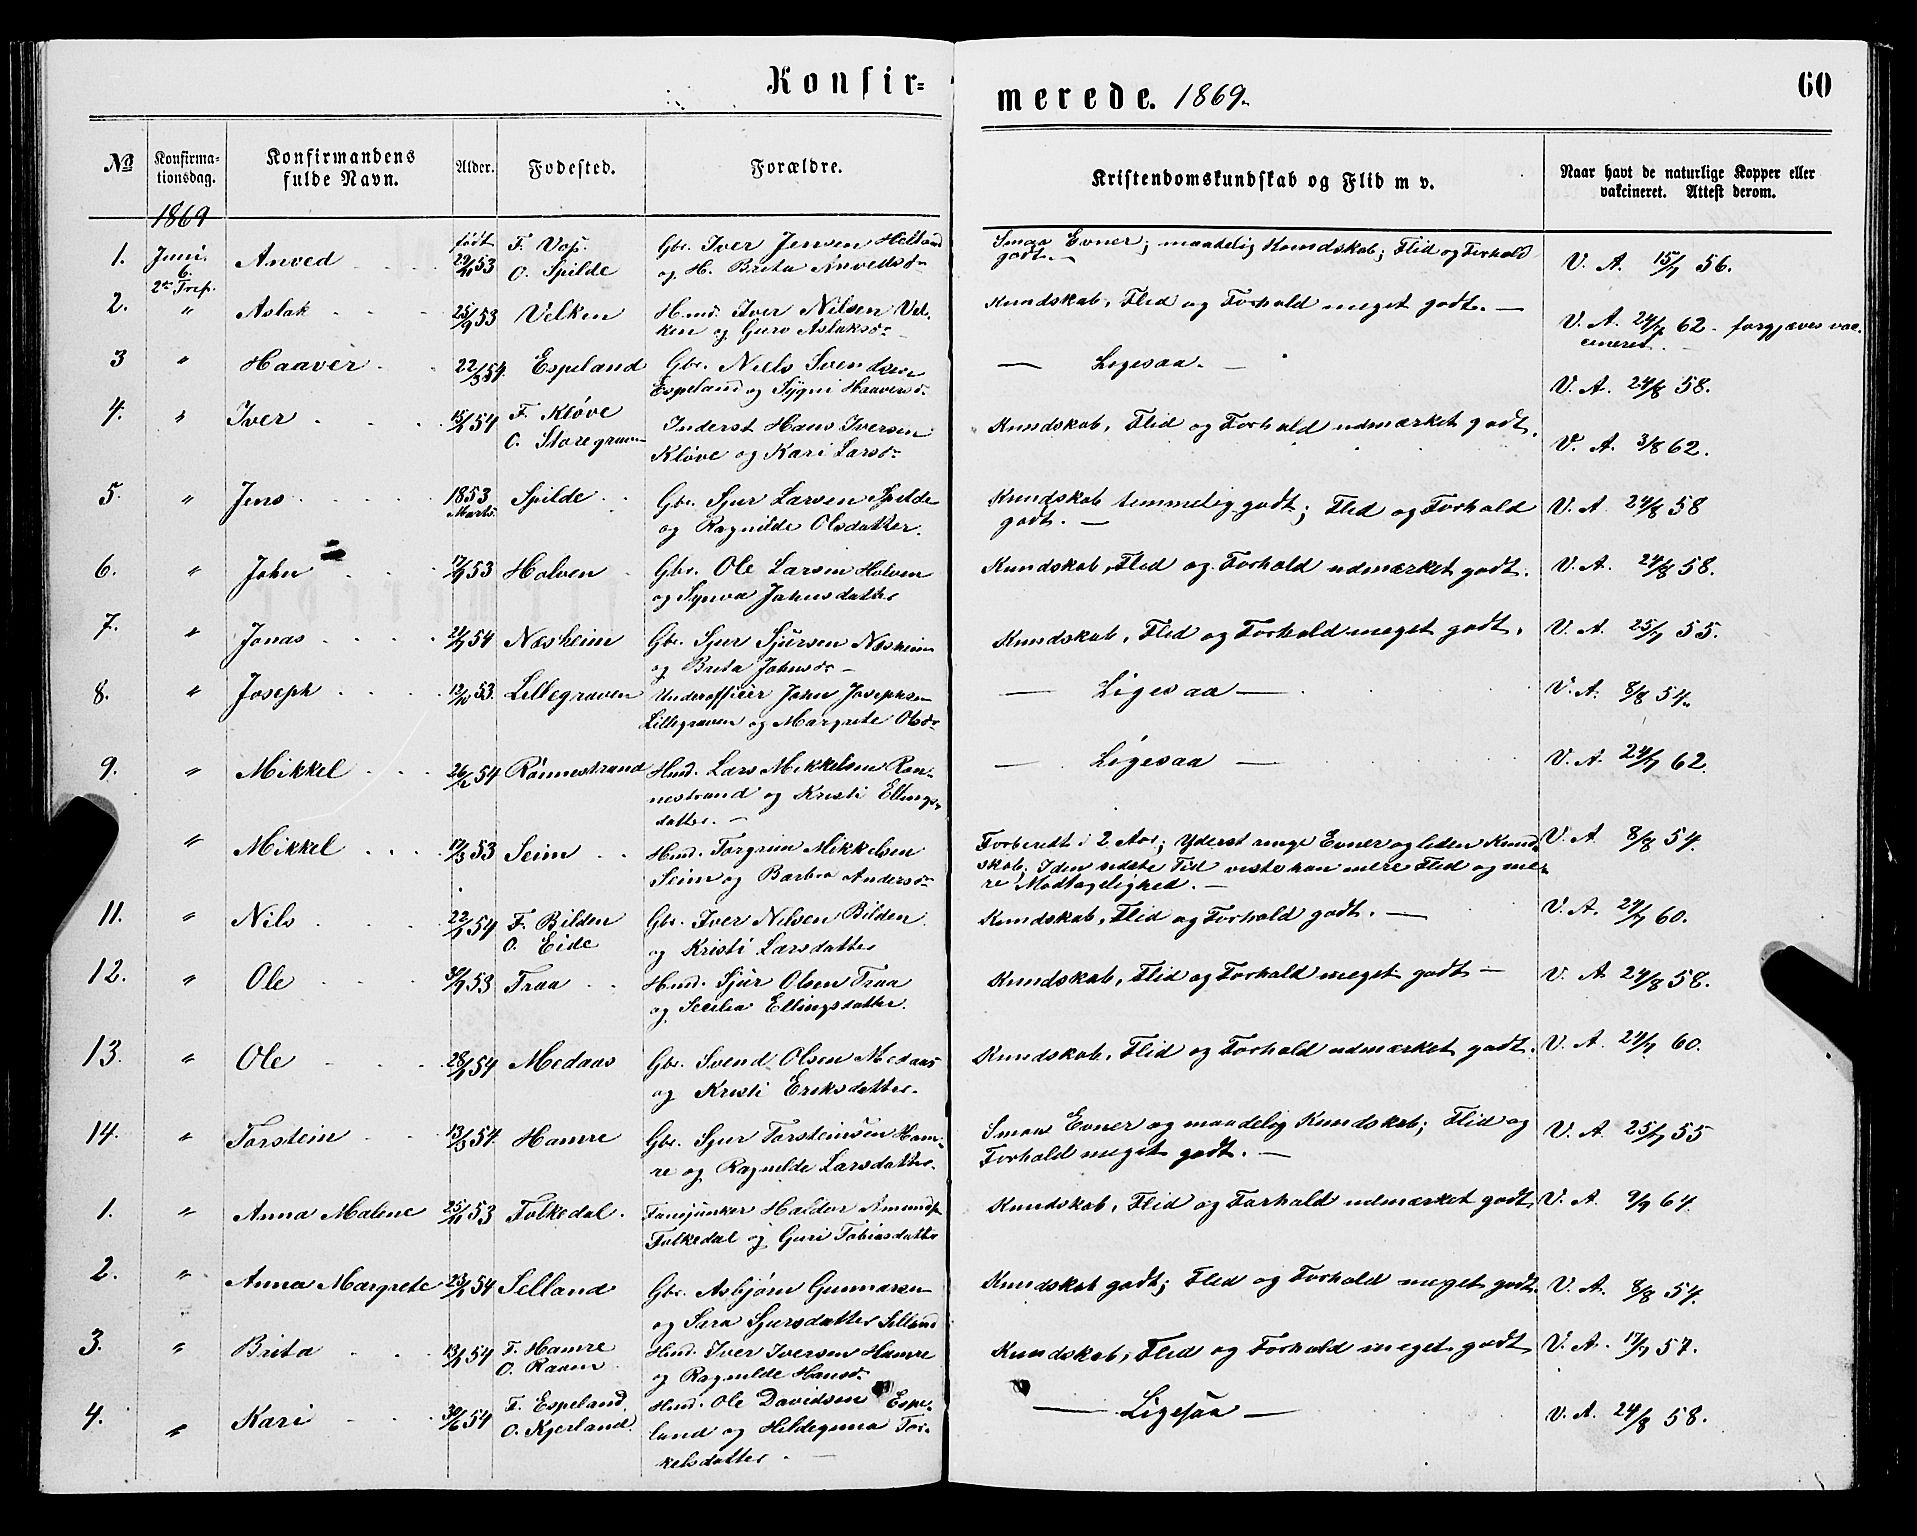 Konfir-
merede. 1869.
60
No
Konfirma-
tionsdag.
Konfirmandens
fulde Navn.
Alder.
Fødested.
Forældre.
Kristendomskundskab og Flid m v.
Naar havt de naturlige Kopper eller
vakcineret. Attest derom.
1869
1. Juni. Anved født F. Vos. Gbr. Iver Jensen Helland Smaa Evner; maadelig Kundskab; Flid og Forhold
6. 29/11 53 O. Spilde og H. Brita Anvedsd- godt. — V. A. 15/7 56.
2den Tref.
2. " Aslak 25/9 53 Velken Hmd. Iver Nilsen Vel- Kundskab, Flid og Forhold meget godt. —
ken og Guro Aslaksd- V. A. 24/7 62 - forgjæves vac-
cineret.
3 " Haaver 22/3 54. Espeland Gbr. Niels Svendsen — Ligesaa. —
Espeland og Sygni Haaversd. V. A. 24/8 58.
4. " Iver 15/1 54 F. Kløve Inderst Hans Iversen Kundskab, Flid og Forhold udmærket godt.
O. Storegraven Kløve og Kari Larsd- V. A. 3/8 62.
5. " Jens 1853 Spilde Gbr. Sjur Larsen Spilde Kundskab temmelig godt; Flid og Forhold V. A 24/8 58
Marts. og Ragnilde Olsdatter. godt. —
6. " John 17/9 53 Holven Gbr. Ole Larsen Holven Kundskab, Flid og Forhold udmærket godt. V. A. 24/8 58.
og Synva Johnsdatter
7. " Jonas 21/1 54 Næsheim Gbr. Sjur Sjursen Næsheim Kundskab, Flid og Forhold meget godt. V. A. 25/7 55.
og Brita Johnsd-
8. " Joseph 12/10 53. Lillegraven Underofficer John Josephsen — Ligesaa — V. A. 8/8 54.
Lillegraven og Margrete Olsd-
9. " Mikkel 26/2 54 Rønnestrand Hmd. Lars Mikkelsen Røn- — Ligesaa — V. A. 24/7 62.
nestrand og Kristi Ellings-
datter. —
" Mikkel 17/3 53 Seim Hmd. Torgrim Mikkelsen Forberedt i 2 Aar; Yderst ringe Evner og liden Kund- V. A 8/8 54.
Seim og Barbra Andersd- skab; I den sidste Tid viste han mere Flid og me-
re Modtagelighed. —
11. " Nils 22/1 54 F. Bilden Gbr. Iver Nilsen Bilden Kundskab, Flid og Forhold godt. — V. A. 24/7 60.
O. Eide og Kristi Larsdatter
12. " Ole 30/9 53 Traa Hmd. Sjur Olsen Traa Kundskab, Flid og Forhold meget godt — V. A. 24/8 58.
og Secilia Ellingsdatter.
13. " Ole 28/1 54 Medaas Gbr. Svend Olsen Medaas Kundskab, Flid og Forhold udmærket godt. V. A. 24/7 60.
og Kristi Eriksdatter.
14. " Torstein 13/3 54. Hamre Gbr. Sjur Torsteinsen Ham- Smaa Evner og maadelig Kundskab; Flid og V. A. 25/7 55
re og Ragnilde Larsdatter. Forhold meget godt. —
1. " Anna Malene 25/11 53 Folkedal. Fanejunker Haldor Amunds Kundskab, Flid og Forhold udmærket godt V. A. 9/7 64.
Folkedal og Guri Tobiasdatter
2. " Anna Margrete 23/1 54 Selland Gbr. Asbjørn Gunnarsen Kundskab godt; Flid og Forhold meget godt. V. A. 8/8 54.
og Sara Sjursdatter Selland
3. " Brita 13/1 54 F. Hamre Hmd. Iver Iversen Hamre Kundskab, Flid og Forhold meget godt V. A. 17/7 57.
O. Raaen og Ragnilde Hansd-
4. " Kari 30/6 54 F. Espeland. Hmd. Ole Davidsen Espe- — Ligesaa — V. A. 24/8 58.
O. Kjerland. land og Hildegunna Tor-
kelsdatter. —